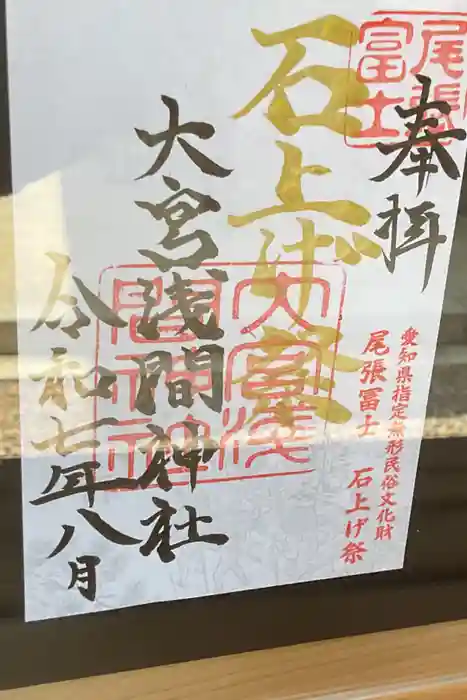 奉拝
尾張
富士
愛知県指定無形民俗文化財
尾張冨士 石上げ祭
石上げ祭
大宮浅間神社
大宮浅
間神社
令和七年八月